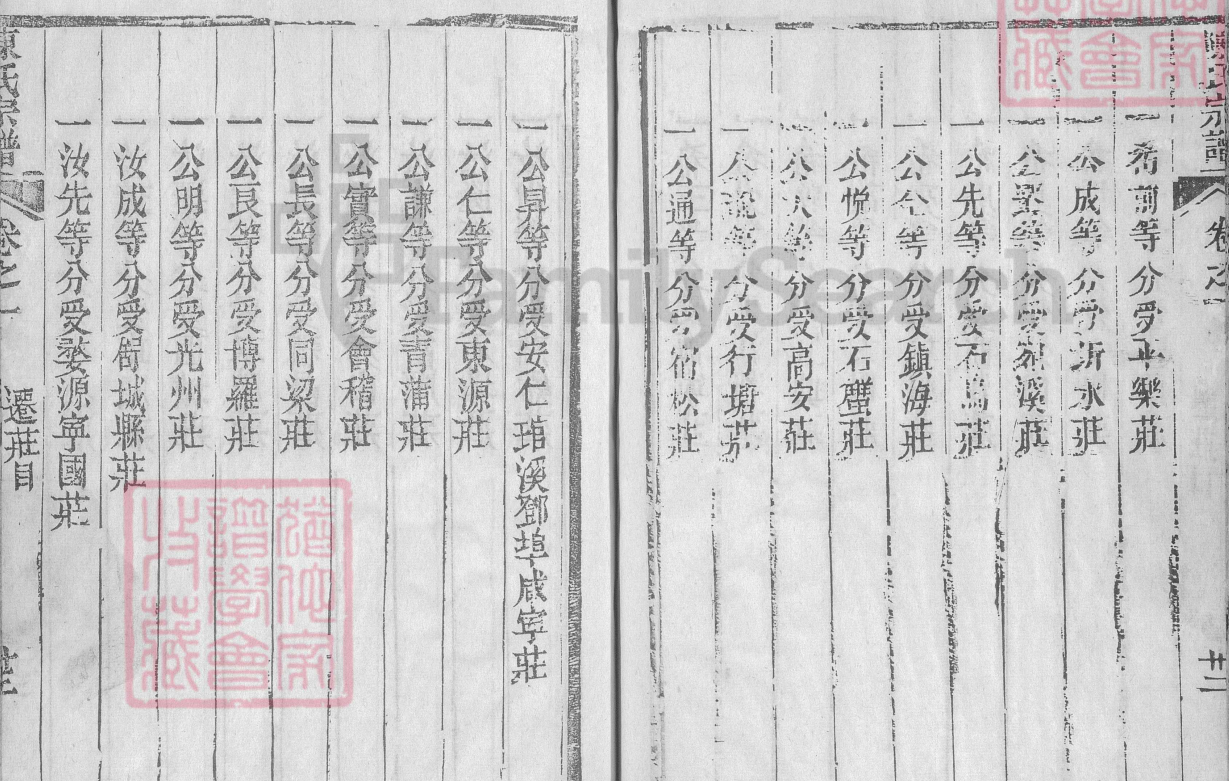 陳氏宗譜 卷之一 廿二
一 希前等分受平樂莊
一 公成等分受蘄水莊
一 公堅等分受羅溪莊
一 公先等分受石烏莊
一 公全等分受鎮海莊
一 公悅等分受石蟹莊
一 公太等分受高安莊
一 公說等分受行塘莊
一 公通等分受宿松莊
一 公昇等分受安仁琯溪鄧埠咸寧莊
一 公仁等分受東源莊
一 公謙等分受青蒲莊
一 公實等分受會稽莊
一 公長等分受同梁莊
一 公良等分受博羅莊
一 公明等分受光州莊
一 汝成等分受 城縣莊
一 汝先等分受婺源寧國莊
陳氏宗譜 卷之一 遷莊目
FamilySearch
譜學會
收藏